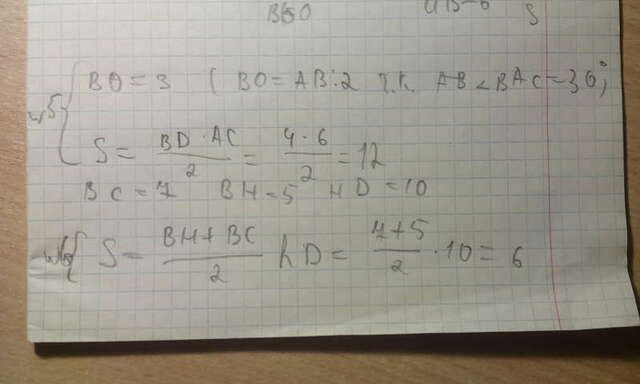 BO
S
№5 BO = 3 ( BO = AB : 2 т.к. ∠BAC = 30°;
S = BD · AC / 2 = 4 · 6 / 2 = 12
BC = 7 BH = 5 HD = 10
S = BH + BC / 2 hD = 7 + 5 / 2 · 10 = 6